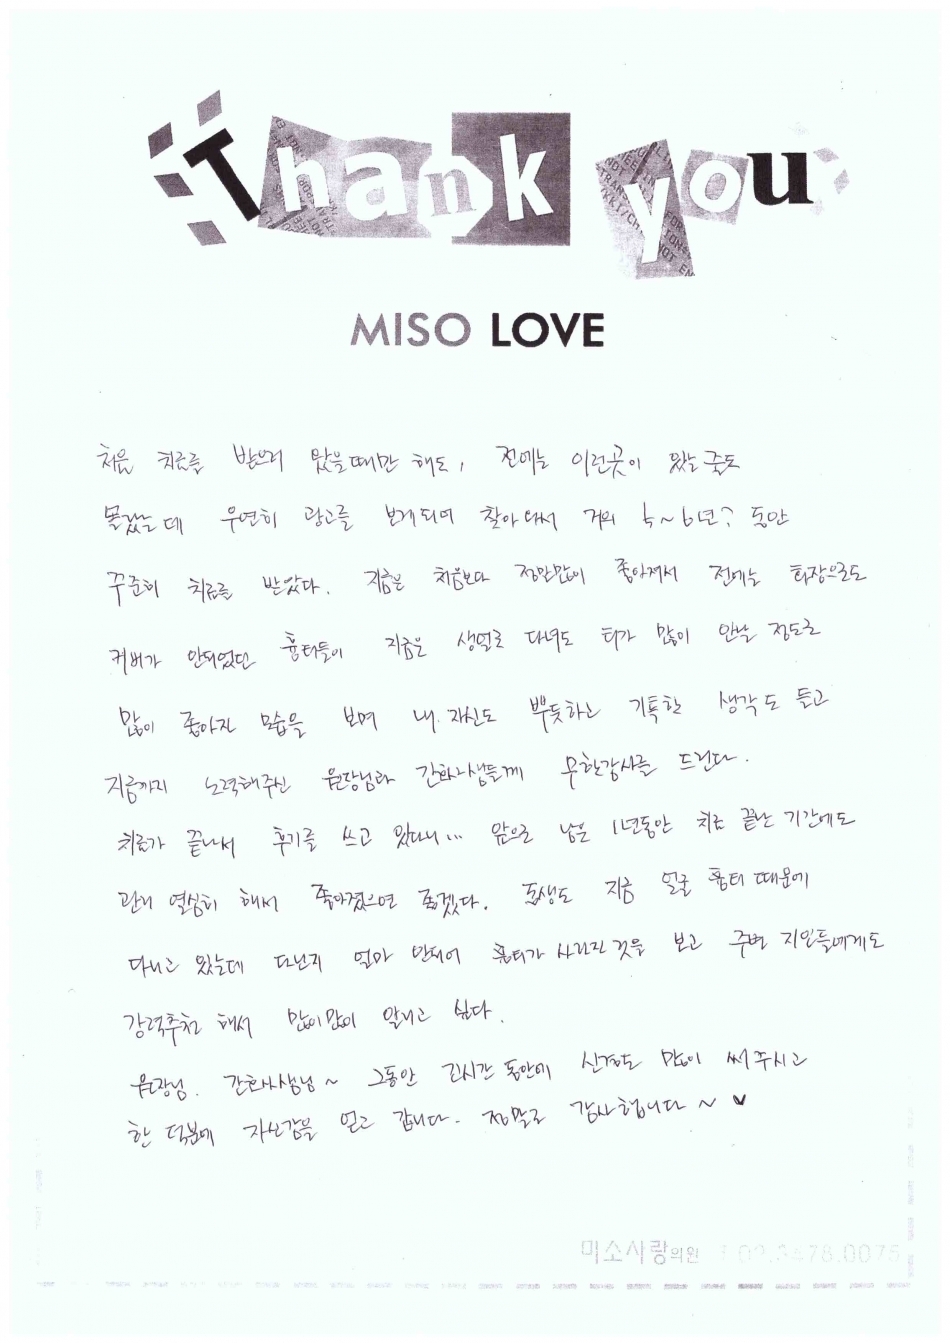 Thank you
MISO LOVE
처음 치료를 받으러 왔을때만 해도, 전에는 이런곳이 있는줄도
몰랐는데 우연히 광고를 보게되어 찾아와서 거의 5~6년? 동안
꾸준히 치료를 받았다. 지금은 처음보다 정말많이 좋아져서 전에는 화장으로도
커버가 안되었던 흉터들이 지금은 생얼로 다녀도 티가 많이 안날 정도로
많이 좋아진 모습을 보며 내 자신도 뿌듯하고 기특한 생각도 들고
지금까지 노력해주신 원장님과 간호사샘들께 무한감사를 드린다.
치료가 끝나서 후기를 쓰고 있다니... 앞으로 남은 1년동안 치료 끝난 기간에도
관리 열심히 해서 좋아졌으면 좋겠다. 동생도 지금 얼굴 흉터 때문에
다니고 있는데 다닌지 얼마 안되어 흉터가 사라진 것을 보고 주변 지인들에게도
강력추천 해서 많이많이 알리고 싶다.
원장님. 간호사샘님~ 그동안 긴시간 동안에 신경도 많이 써주시고
한 덕분에 자신감을 얻고 갑니다. 정말로 감사합니다~ ♥
미소사랑의원 02.3478.0075